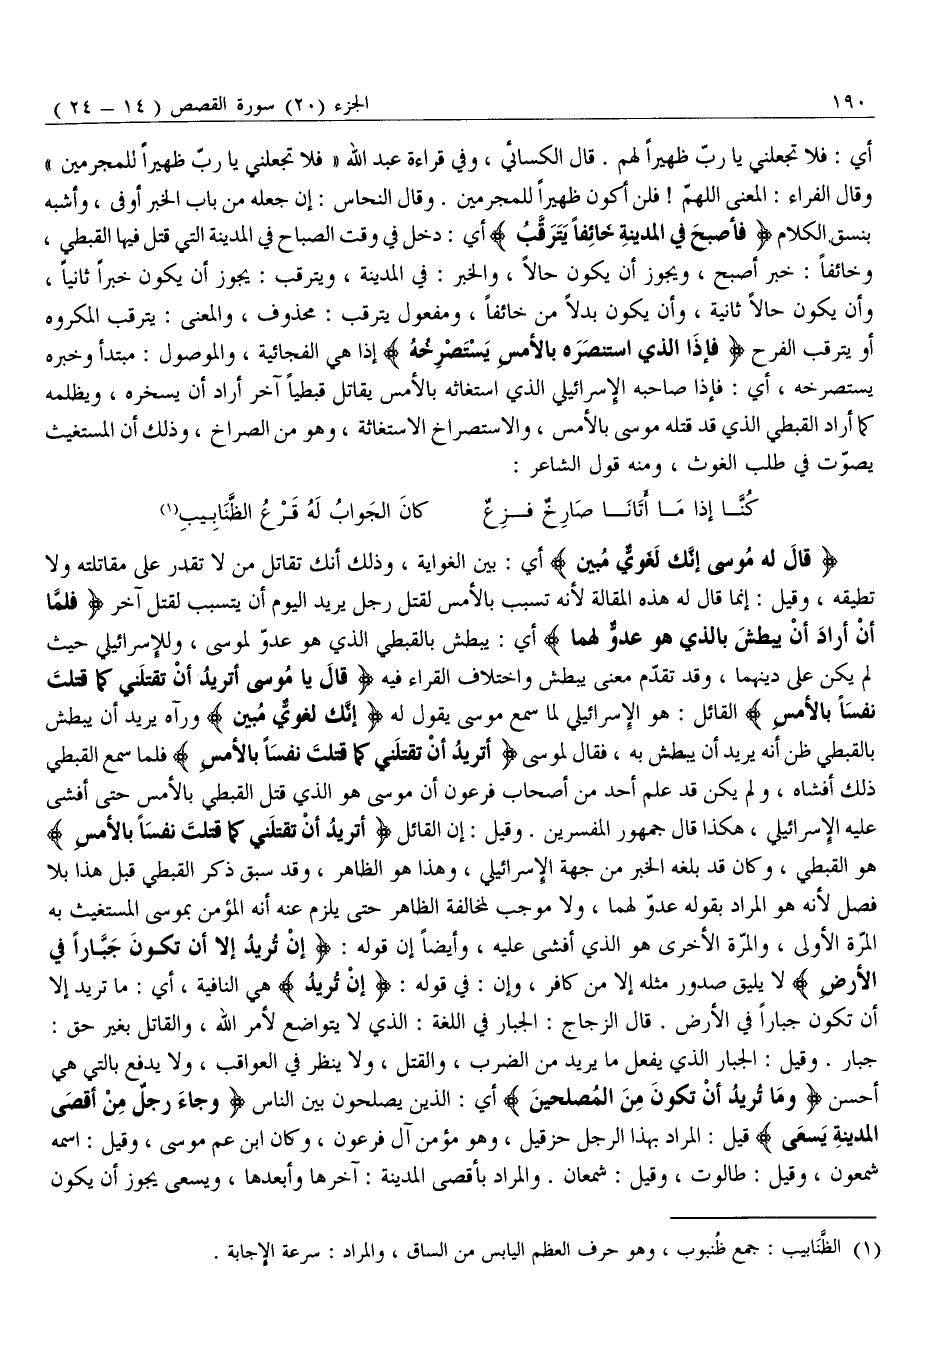 ١٩٠ الجزء (٢٠) سورة القصص ( ١٤ – ٢٤ )
أي : فلا تجعلني يا ربّ ظهيراً لهم . قال الكسائي ، وفي قراءة عبد الله « فلا تجعلني يا ربّ ظهيراً للمجرمين »
وقال الفراء : المعنى اللهمّ ! فلن أكون ظهيراً للمجرمين . وقال النحاس : إن جعله من باب الخبر أوفى ، وأشبه
بنسق الكلام ﴿ فأصبحَ في المدينةِ خَائفاً يَتَرَقَّبُ ﴾ أي : دخل في وقت الصباح في المدينة التي قتل فيها القبطي ،
وخائفاً : خبر أصبح ، ويجوز أن يكون حالاً ، والخبر : في المدينة ، ويترقب : يجوز أن يكون خبراً ثانياً ،
وأن يكون حالاً ثانية ، وأن يكون بدلاً من خائفاً ، ومفعول يترقب : محذوف ، والمعنى : يترقب المكروه
أو يترقب الفرح ﴿ فإذَا الذي استنصَرَه بالأمسِ يَسْتَصْرِخُهُ ﴾ إذا هي الفجائية ، والموصول : مبتدأ وخبره
يستصرخه ، أي : فإذا صاحبه الإسرائيلي الذي استغاثه بالأمس يقاتل قبطياً آخر أراد أن يسخره ، ويظلمه
كما أراد القبطي الذي قد قتله موسى بالأمس ، والاستصراخ الاستغاثة ، وهو من الصراخ ، وذلك أن المستغيث
يصوّت في طلب الغوث ، ومنه قول الشاعر :
كُنَّـا إذا مَـا أتَانَـا صَارِخٌ فـزِعٌ كانَ الجَوابُ لَهُ قَـرْعُ الظَّنَابِيبِ(١)
﴿ قالَ له مُوسى إنَّك لَغَويٌّ مُبين ﴾ أي : بين الغواية ، وذلك أنك تقاتل من لا تقدر على مقاتلته ولا
تطيقه ، وقيل : إنما قال له هذه المقالة لأنه تسبب بالأمس لقتل رجل يريد اليوم أن يتسبب لقتل آخر ﴿ فلمَّا
أنْ أرادَ أنْ يبطشَ بالذي هو عدوٌّ لهما ﴾ أي : يبطش بالقبطي الذي هو عدوّ لموسى ، وللإسرائيلي حيث
لم يكن على دينهما ، وقد تقدّم معنى يبطش واختلاف القراء فيه ﴿ قالَ يا مُوسى أتريدُ أنْ تقتلَني كما قتلتَ
نفسَاً بالأمسِ ﴾ القائل : هو الإسرائيلي لما سمع موسى يقول له ﴿ إنَّك لغويٌّ مُبين ﴾ ورآه يريد أن يبطش
بالقبطي ظن أنه يريد أن يبطش به ، فقال لموسى ﴿ أتريدُ أنْ تقتلَني كما قتلتَ نفسَاً بالأمسِ ﴾ فلما سمع القبطي
ذلك أفشاه ، ولم يكن قد علم أحد من أصحاب فرعون أن موسى هو الذي قتل القبطي بالأمس حتى أفشى
عليه الإسرائيلي ، هكذا قال جمهور المفسرين . وقيل : إن القائل ﴿ أتريدُ أنْ تقتلَني كما قتلتَ نفسَاً بالأمسِ ﴾
هو القبطي ، وكان قد بلغه الخبر من جهة الإسرائيلي ، وهذا هو الظاهر ، وقد سبق ذكر القبطي قبل هذا بلا
فصل لأنه هو المراد بقوله عدوّ لهما ، ولا موجب لمخالفة الظاهر حتى يلزم عنه أنه المؤمن بموسى المستغيث به
المرّة الأولى ، والمرّة الأخرى هو الذي أفشى عليه ، وأيضاً إن قوله : ﴿ إنْ تُريدُ إلا أن تكـونَ جَبَّـاراً في
الأرضِ ﴾ لا يليق صدور مثله إلا من كافر ، وإن : في قوله : ﴿ إنْ تُريدُ ﴾ هي النافية ، أي : ما تريد إلا
أن تكون جباراً في الأرض . قال الزجاج : الجبار في اللغة : الذي لا يتواضع لأمر الله ، والقاتل بغير حق :
جبار . وقيل : الجبار الذي يفعل ما يريد من الضرب ، والقتل ، ولا ينظر في العواقب ، ولا يدفع بالتي هي
أحسن ﴿ ومَا تُريدُ أنْ تكونَ مِنَ المُصلحينَ ﴾ أي : الذين يصلحون بين الناس ﴿ وجاءَ رجلٌ مِنْ أقصَى
المدينةِ يَسعَى ﴾ قيل : المراد بهذا الرجل حزقيل ، وهو مؤمن آل فرعون ، وكان ابن عم موسى ، وقيل : اسمه
شمعون ، وقيل : طالوت ، وقيل : شمعان . والمراد بأقصى المدينة : آخرها وأبعدها ، ويسعى يجوز أن يكون
(١) الظَّنابيب : جمع ظُنبوب ، وهو حرف العظم اليابس من الساق ، والمراد : سرعة الإجابة .